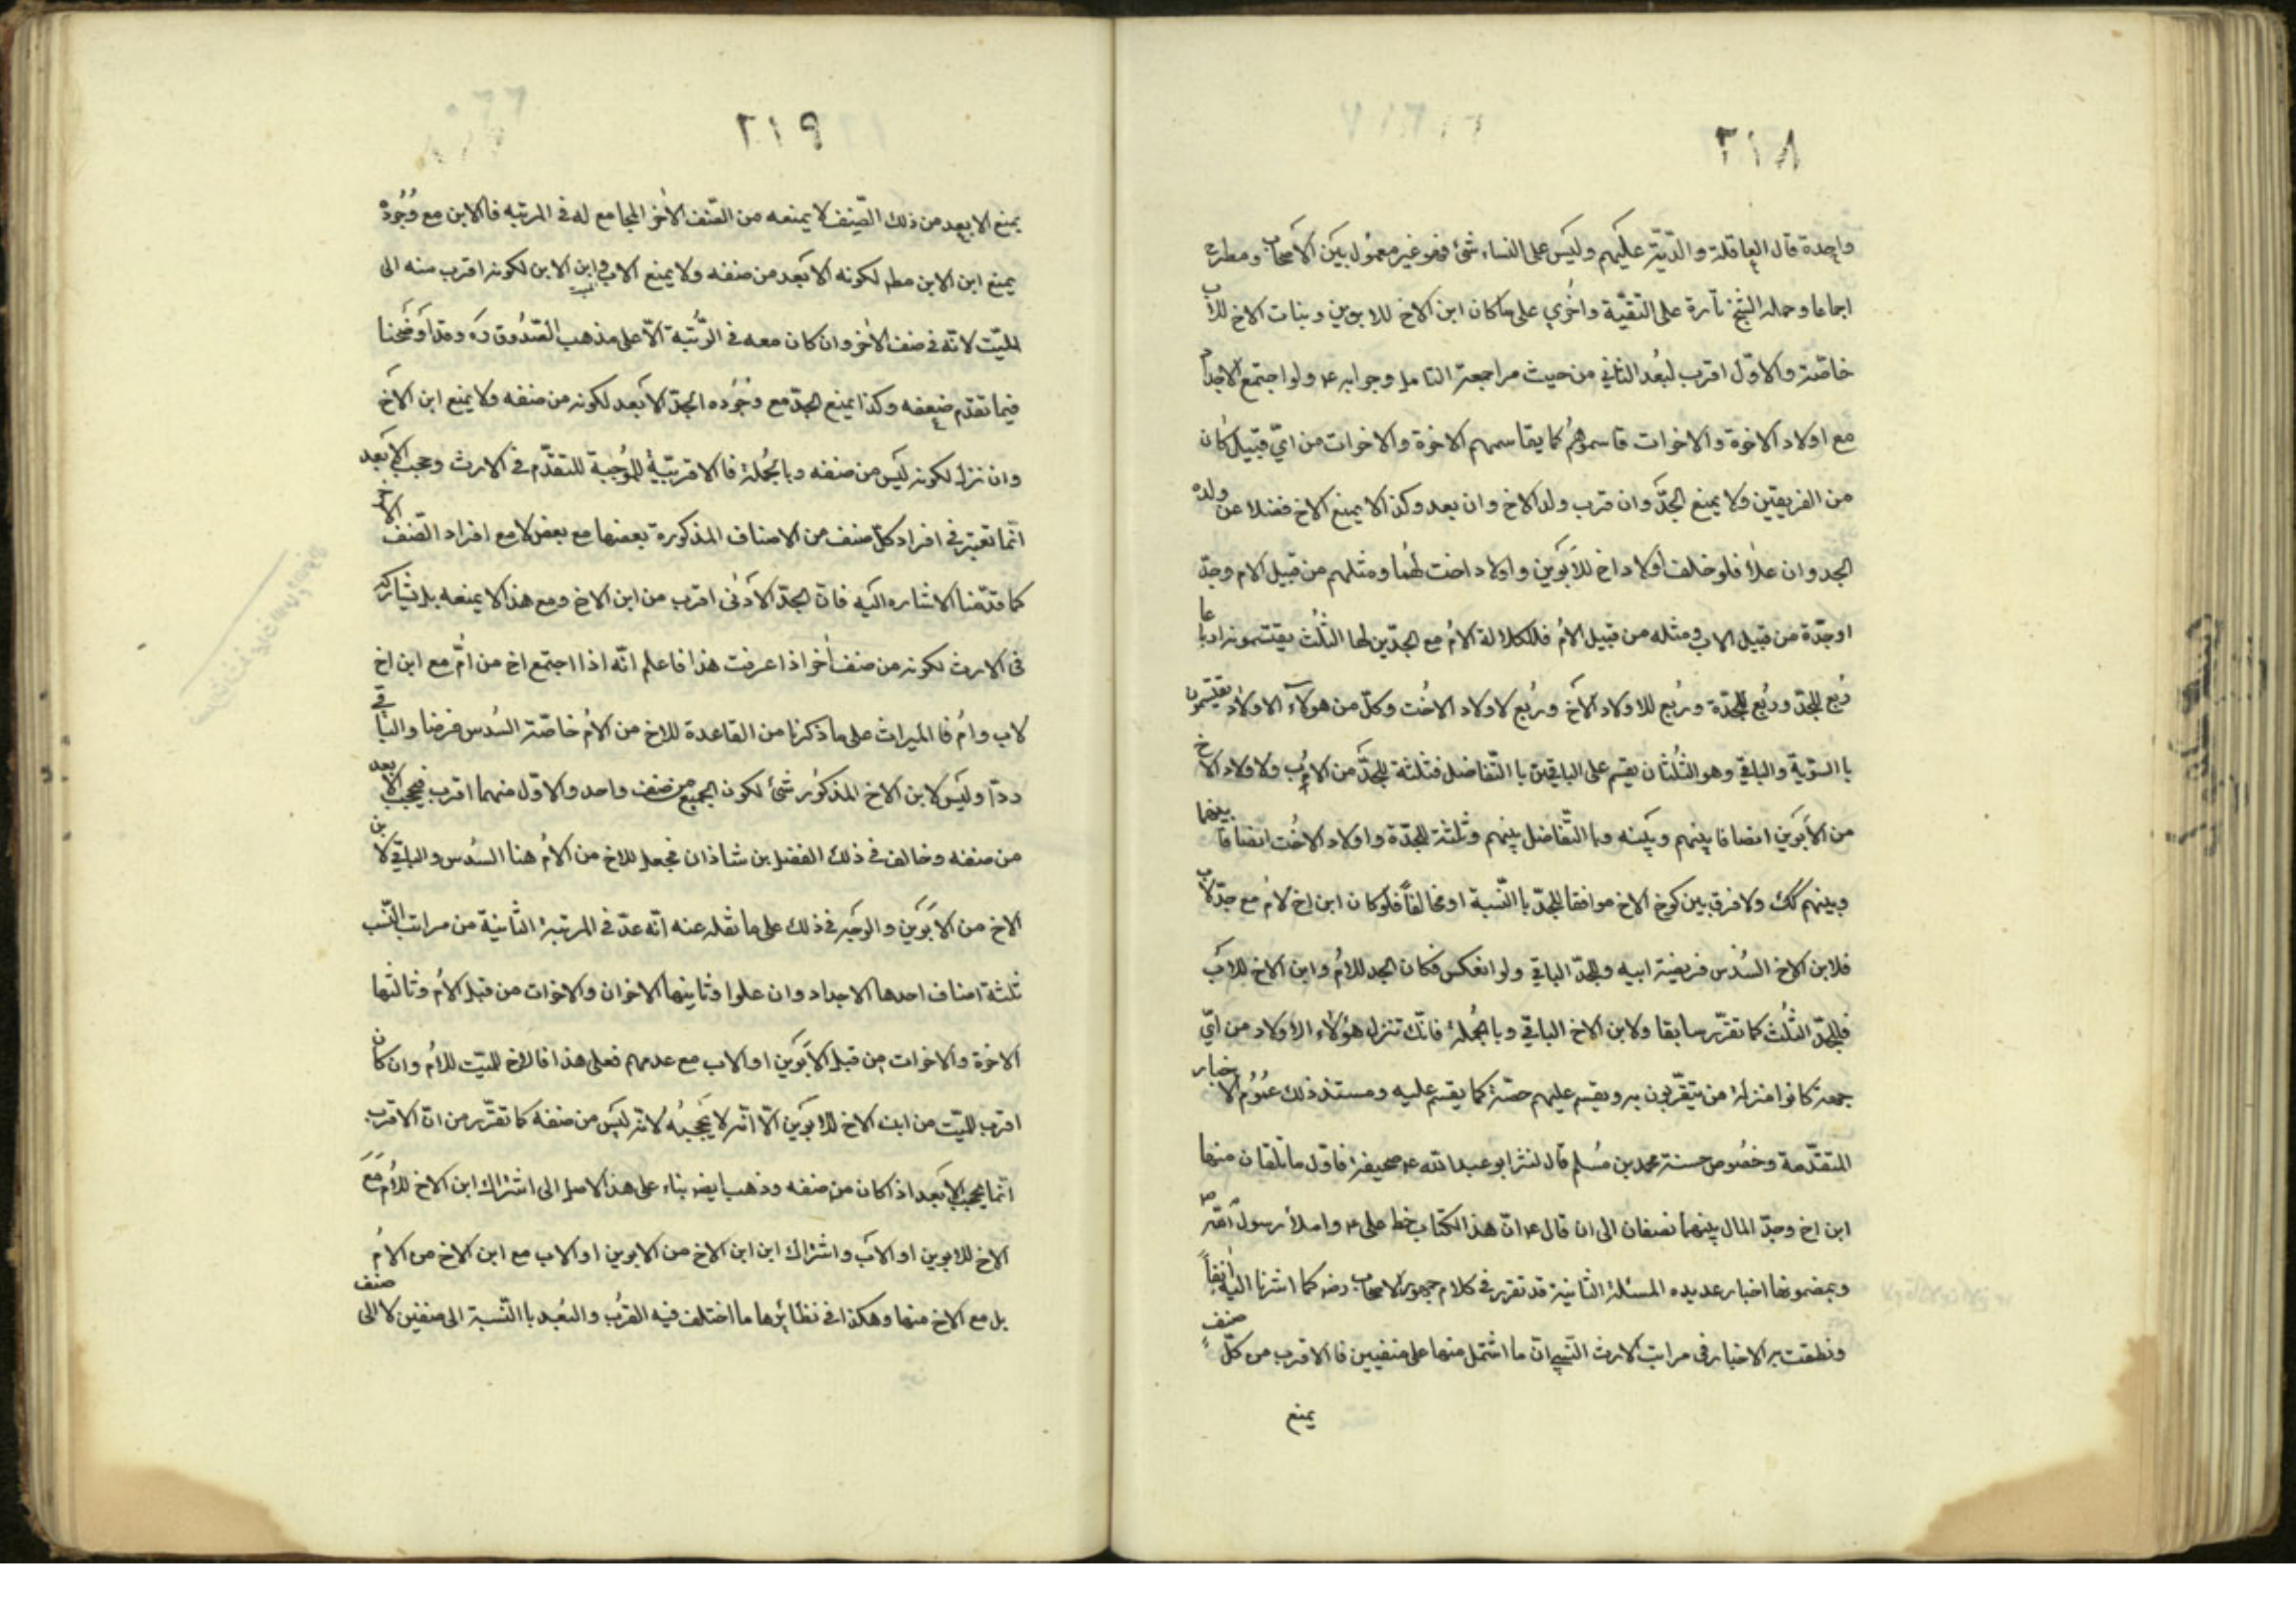 ٣١٨
واحدة قال العاقلة والدّيّة عليهم وليس على النساء شئ فهو غير معمول بين الاصحاب ومطرح
اجماعا وحمله الشيخ تارة على التقيّة واخرى على ما كان ابن الاخ للابوين وبنات الاخ للاب
خاصّة والاوّل اقرب لبُعد الثاني من حيث مراجعة التامل وجوابه ع ولو اجتمع الاجداد
مع اولاد الاخوة والاخوات قاسموهم كما يقاسمهم الاخوة والاخوات من ايّ قبيل كان
من الفريقين ولا يمنع الجدّ وان قرب ولد الاخ وان بعد وكذا لا يمنع الاخ فضلا عن ولده
الجد وان علا فلو خلف اولاد اخ للابوين واولاد اخت لهما ومثلهم من قبيل الام وجدّ
او جدّة من قبيل الاب ومثله من قبيل الامّ فلكلالة الامّ مع الجدّين لها الثلُث يقتسمونه ارباعا
رُبع للجدّ ورُبع للجدّة ورُبع للاولاد الاخ ورُبع لاولاد الاخت وكلّ من هولاء الاولاد يقتسمون
با السّوية والباقي وهو الثلُثان يقسم على الباقين با التّفاضل فثلثة للجدّ من الاب ولاولاد الاخ
من الابوين انصافا بينهم وبينه وبا التّفاضل بينهم وثلثة للجدّة واولاد الاخت انصافا بينها
وبينهم كك ولا فرق بين كون الاخ موافقا للجدّ با النّسبة او مخالفاً فلو كان ابن اخ لامّ مع جدّ لاب
فلابن الاخ السُدس فريضة ابيه وللجدّ الباقي ولو انعكس فكان الجد للامّ وابن الاخ للاب
فللجدّ الثلُث كما تقرّر سابقا ولابن الاخ الباقي وبا الجُملة فانّك تنزل هؤلاء الاولاد من ايّ
جهة كانوا منزلة من يتقرّبون به ويقسم عليهم حصّة كما يقسم عليه ومستند ذلك عُمُوم الاخبار
المتقدّمة وخصُوص حسنة محمد بن مُسلم قال نشر ابو عبد الله ع صحيفة فاوّل ما تلقان منها
ابن اخ وجدّ المال بينهما نصفان الى ان قال ع انّ هذا الكتاب خط على ع واملأ رسول الله ص
وبمضمونها اخبار عديده المسئلة الثانية قد تقرر في كلام جمهور الاصحاب رض كما اشرنا اليه آنفاً
ونطقت به الاخبار في مراتب الارث النسبي انّ ما اشتمل منها على صنفين فا الاقرب من كلّ صنف
يمنع
٣١٩
يمنع الابعد من ذلك الصّنف لا يمنعه من الصّنف الاخر المجامع له في المرتبه فا الابن مع وُجُوده
يمنع ابن الابن مطم لكونه الابَعد من صنفه ولا يمنع الاب ابن الابن لكونه اقرب منه الى
الميّت لانّه في صنف الاخر وان كان معه في الرّتبة الّا على مذهب الصّدُوق ره وقد اوضحنا
فيما تقدم ضعفه وكذا يمنع الجدّ مع وجُوده الجدّ الابَعد لكونه من صنفه ولا يمنع ابن الاخ
وان نزل لكونه ليَس من صنفه وبا الجُملة فا الاقربيّة المُوجبة للتقدّم في الارث وحجب الابَعد
انّما تعتبر في افراد كلّ صنف من الاصناف المذكورة بعضها مع بعض لا مع افراد الصّنف الاخر
كما قدّمنا الاشاره اليه فانّ الجدّ الادنى اقرب من ابن الاخ ومع هذا لا يمنعه بل يشاركه
في الارث لكونه من صنف اخر اذا عرفت هذا فاعلم انّه اذا اجتمع اخ من امّ مع ابن اخ
لاب وامّ فا الميراث على ما ذكرنا من القاعدة للاخ من الامّ خاصّة السُدس فرضا والباقي
ردّا وليَس لابن الاخ المذكُور شئ لكون الجميع من صنف واحد والاوّل منهما اقرب فيحجب الابعد
من صنفه وخالف في ذلك الفضل بن شاذان فجعل للاخ من الامّ هنا السُدس والباقي لابن
الاخ من الابَوَين والوجَه في ذلك على ما نقله عنه انّه عدّ في المرتبة الثانيّة من مراتب النّسب
ثلثة اصناف احدها الاجداد وان علوا وثانيها الاخوان والاخوات من قبل الامّ وثالثها
الاخوة والاخوات من قبل الابَوين او الاب مع عدمهم فعلى هذا فا الاخ للميّت للامّ وان كان
اقرب للميّت من ابن الاخ للابَوين الّا انّه لا يَحجبُه لانّه ليَس من صنفه كما تقرّر من انّ الاقرب
انّما يحجب الابَعد اذا كان من صنفه وذهب ايضه بناء على هذا الاصل الى اشتراك ابن الاخ للامّ مع
الاخ للابوين او الاب واشتراك ابن ابن الاخ من الابوين او الاب مع ابن الاخ من الامّ
بل مع الاخ منها وهكذا في نظائرها ما اختلف فيه القرُب والبُعد با النّسبة الى صنفين لا الى صنف